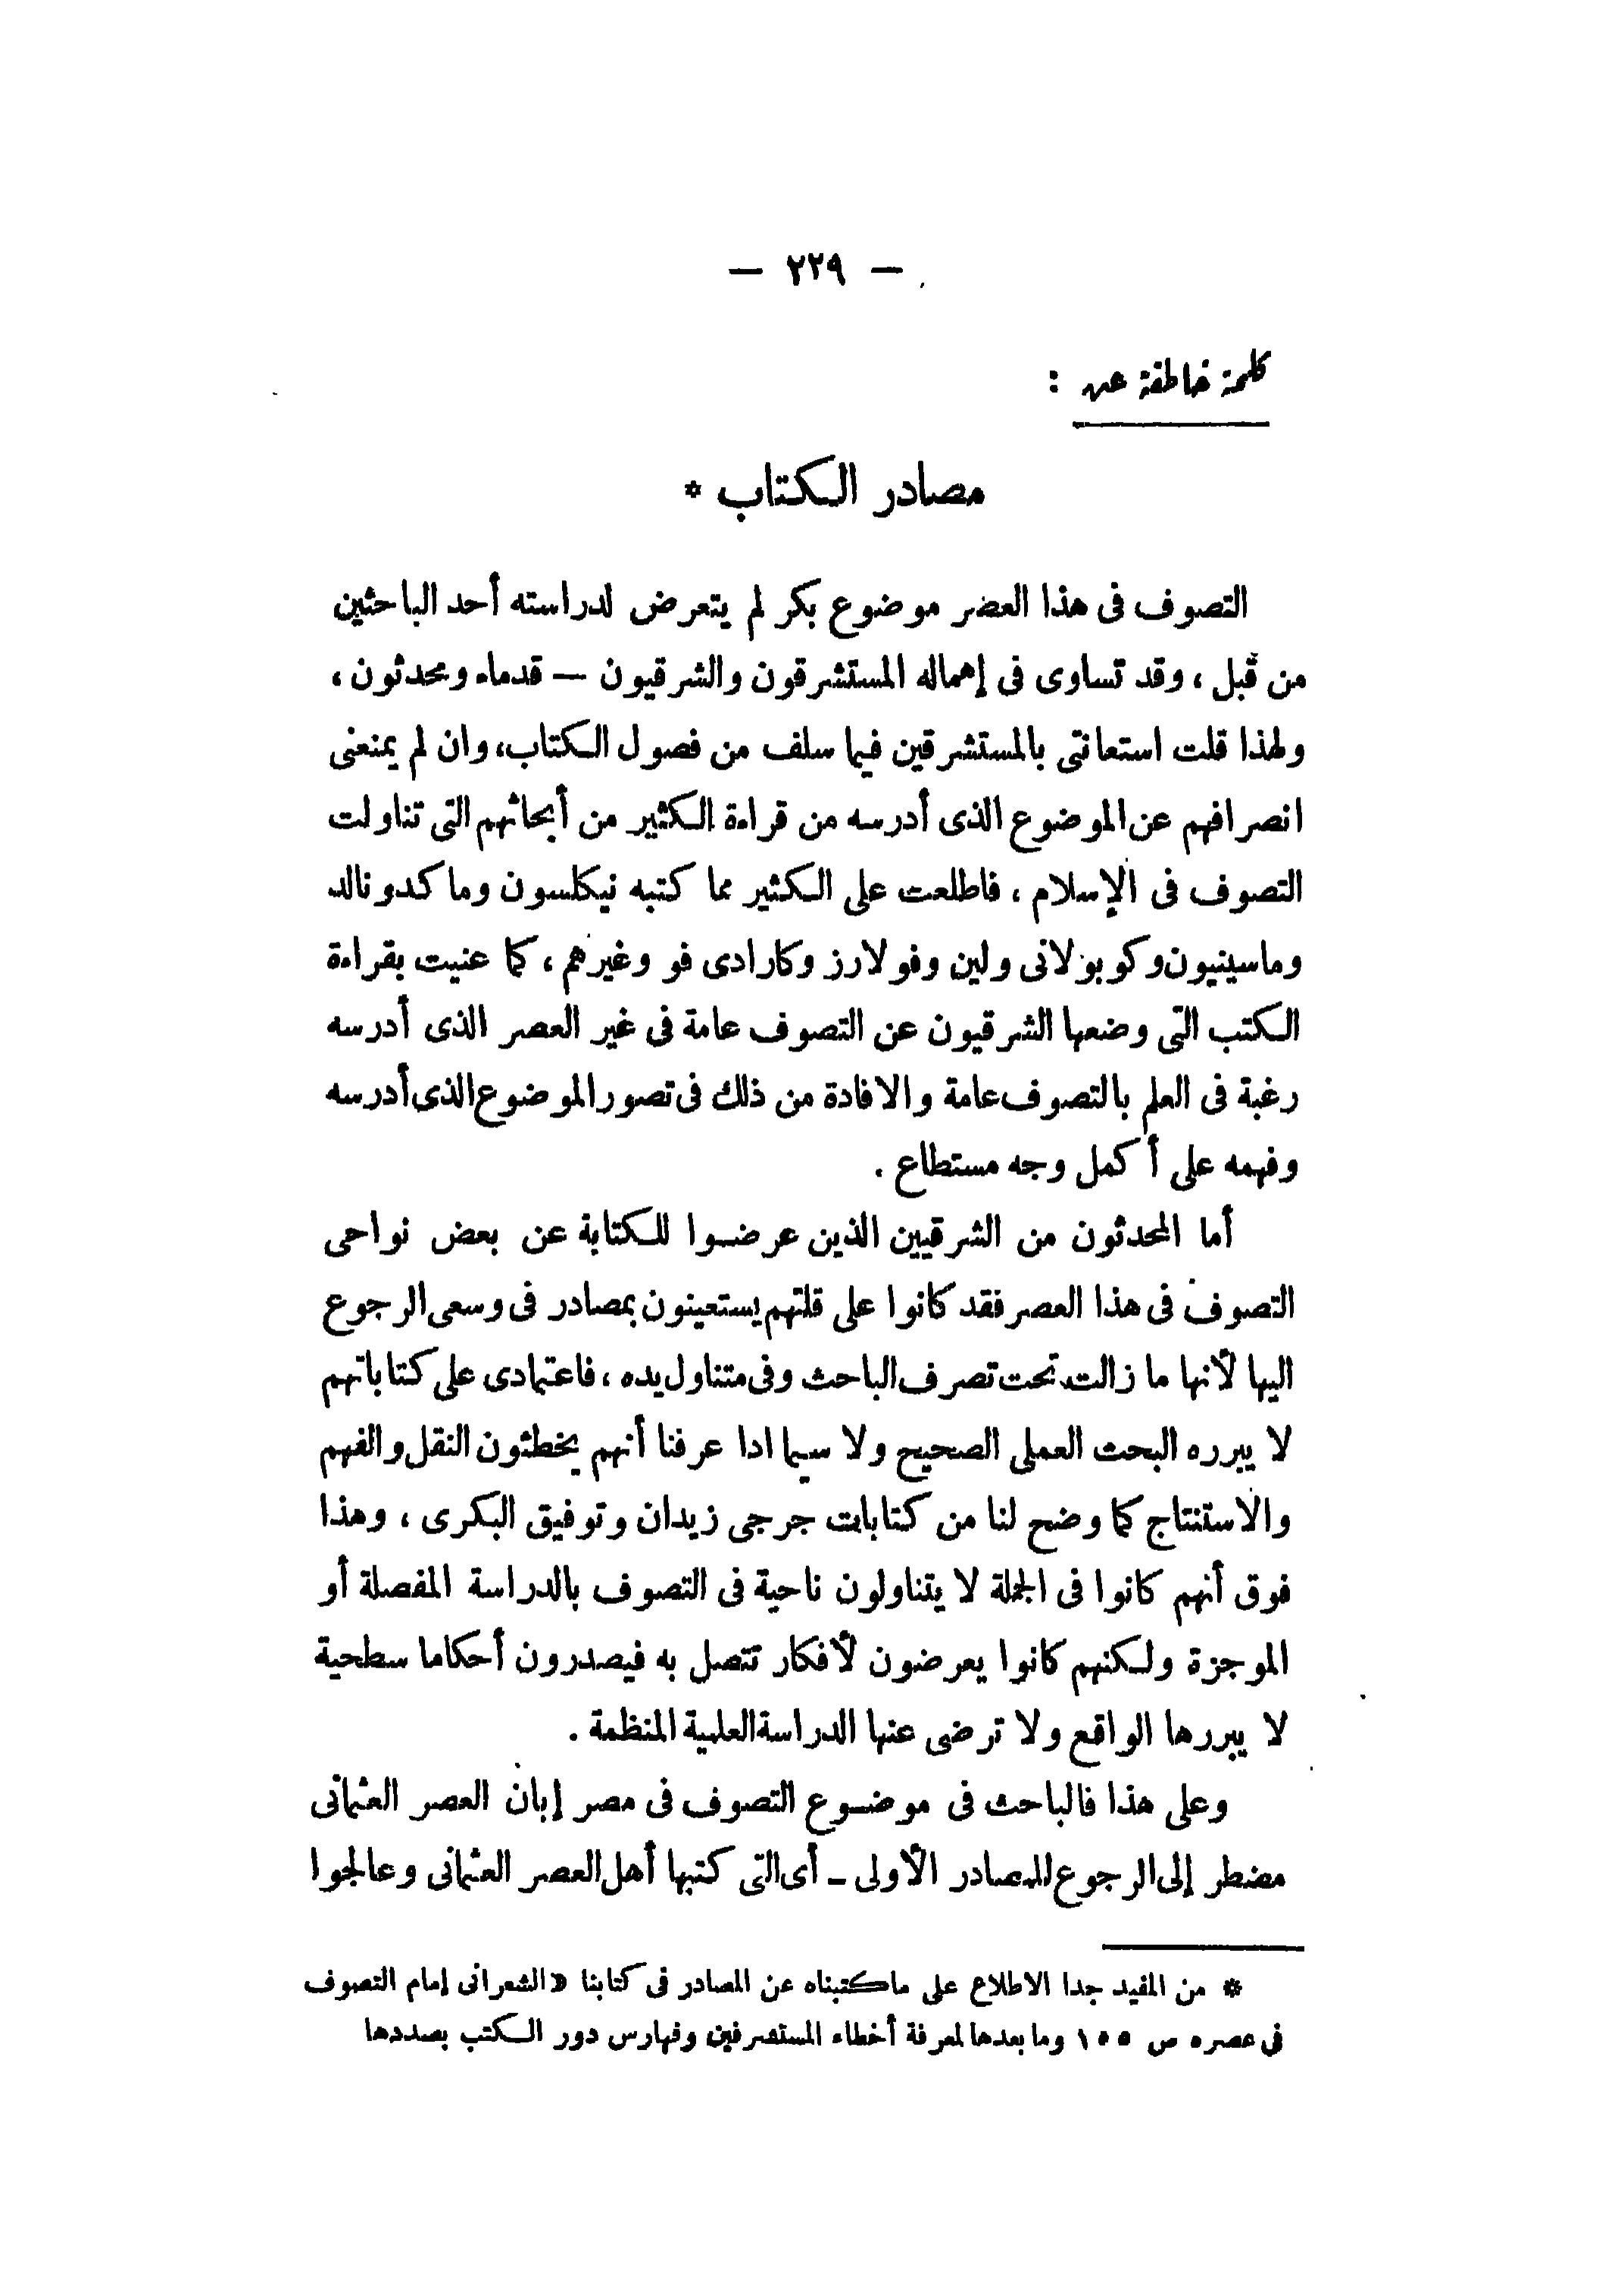 — ٢٢٩ —
كلمة خاطفة عن :
مصادر الكتاب *
التصوف فى هذا العصر موضوع بكر لم يتعرض لدراسته أحد الباحثين
من قبل ، وقد تساوى فى إهماله المستشرقون والشرقيون — قدماء ومحدثون ،
ولهذا قلت استعانتى بالمستشرقين فيما سلف من فصول الكتاب، وان لم يمنعنى
انصرافهم عن الموضوع الذى أدرسه من قراءة الكثير من أبحاثهم التى تناولت
التصوف فى الإسلام ، فاطلعت على الكثير مما كتبه نيكلسون وماكدونالد
وماسينيون وكوبولانى ولين وفولارز وكارادى فو وغيرهم ، كما عنيت بقراءة
الكتب التى وضعها الشرقيون عن التصوف عامة فى غير العصر الذى أدرسه
رغبة فى العلم بالتصوف عامة والافادة من ذلك فى تصور الموضوع الذى أدرسه
وفهمه على أكمل وجه مستطاع .
أما المحدثون من الشرقيين الذين عرضوا للكتابة عن بعض نواحى
التصوف فى هذا العصر فقد كانوا على قلتهم يستعينون بمصادر فى وسعى الرجوع
اليها لأنها ما زالت تحت تصرف الباحث وفى متناول يده ، فاعتمادى على كتاباتهم
لا يبرره البحث العملى الصحيح ولا سيما ادا عرفنا أنهم يخطئون النقل والفهم
والاستنتاج كما وضح لنا من كتابات جرجى زيدان وتوفيق البكرى ، وهذا
فوق أنهم كانوا فى الجملة لا يتناولون ناحية فى التصوف بالدراسة المفصلة أو
الموجزة ولكنهم كانوا يعرضون لأفكار تتصل به فيصدرون أحكاما سطحية
لا يبررها الواقع ولا ترضى عنها الدراسة العلمية المنظمة .
وعلى هذا فالباحث فى موضوع التصوف فى مصر إبان العصر العثمانى
مضطر إلى الرجوع للمصادر الأولى – أى التى كتبها أهل العصر العثمانى وعالجوا
* من المفيد جدا الاطلاع على ماكتبناه عن المصادر فى كتابنا «الشعرانى إمام التصوف
فى عصره ص ١٥٥ وما بعدها لمعرفة أخطاء المستصرفين وفهارس دور الكتب بصددها